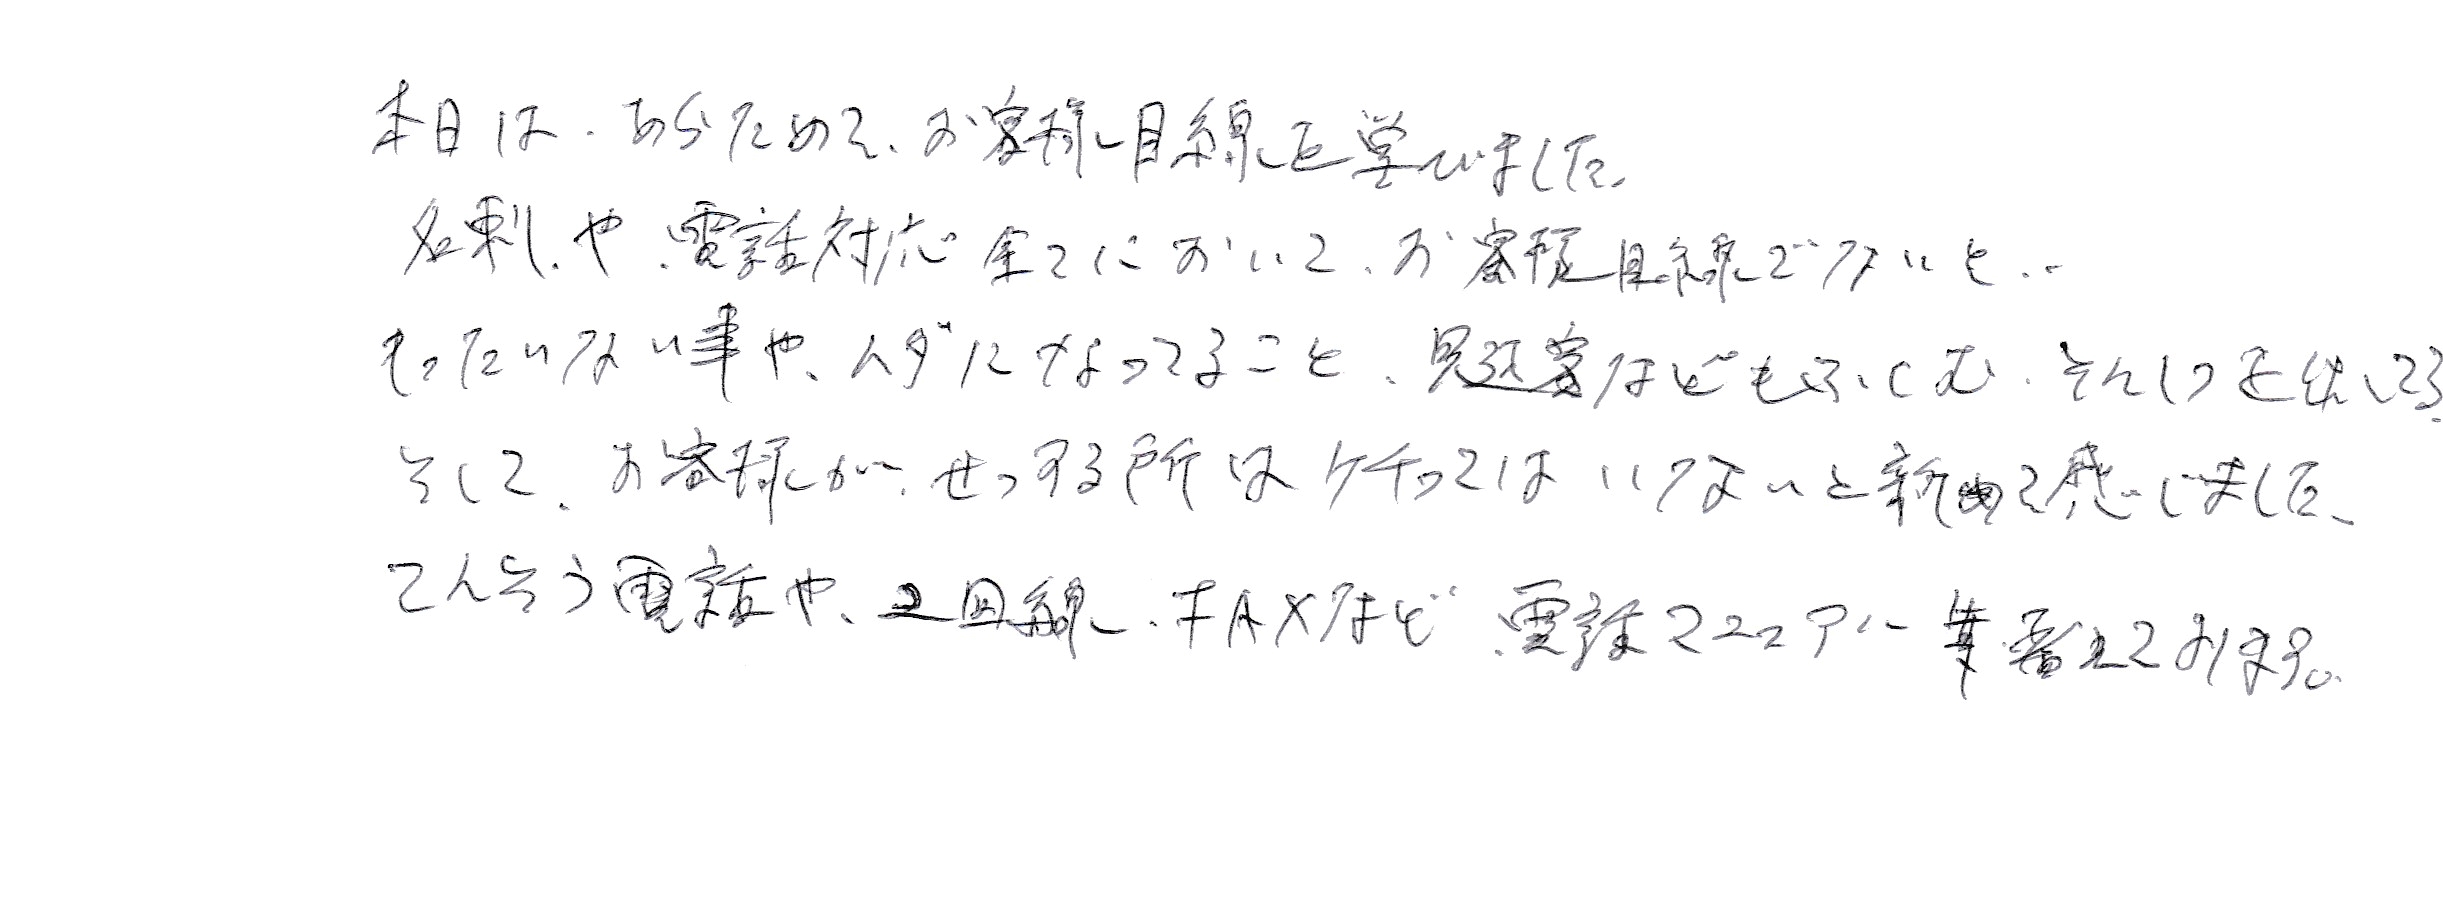 本日は、あらためて、お客様目線を学びました。
名刺、や、電話対応全てにおいて、お客様目線でないと、、
もったいない事や、ムダになってること、見込客などもふくむ、そんしつを出してる。
そして、お客様が、せっする所はケチってはいけないと新めて感じました、
てんそう電話や、2回線、FAXなど、電話マニュアル 考えております。